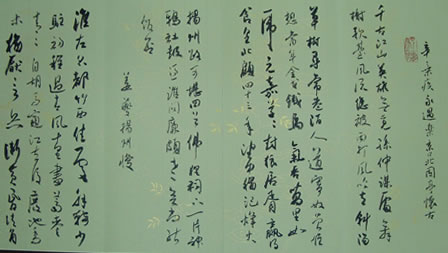 辛弃疾永遇乐京口北固亭怀古
千古江山英雄无觅孙仲谋处舞
榭歌台风流总被雨打风吹去斜阳
草树寻常巷陌人道寄奴曾住
想当年金戈铁马气吞万里如
虎元嘉草草封狼居胥赢得
仓皇北顾四十三年望中犹记烽火
扬州路可堪回首佛狸祠下一片神
鸦社鼓凭谁问廉颇老矣尚能
饭否
姜夔扬州慢
淮左名都竹西佳处解鞍少
驻初程过春风十里尽荠麦
青青自胡马窥江去后废池乔
木犹厌言兵渐黄昏清角